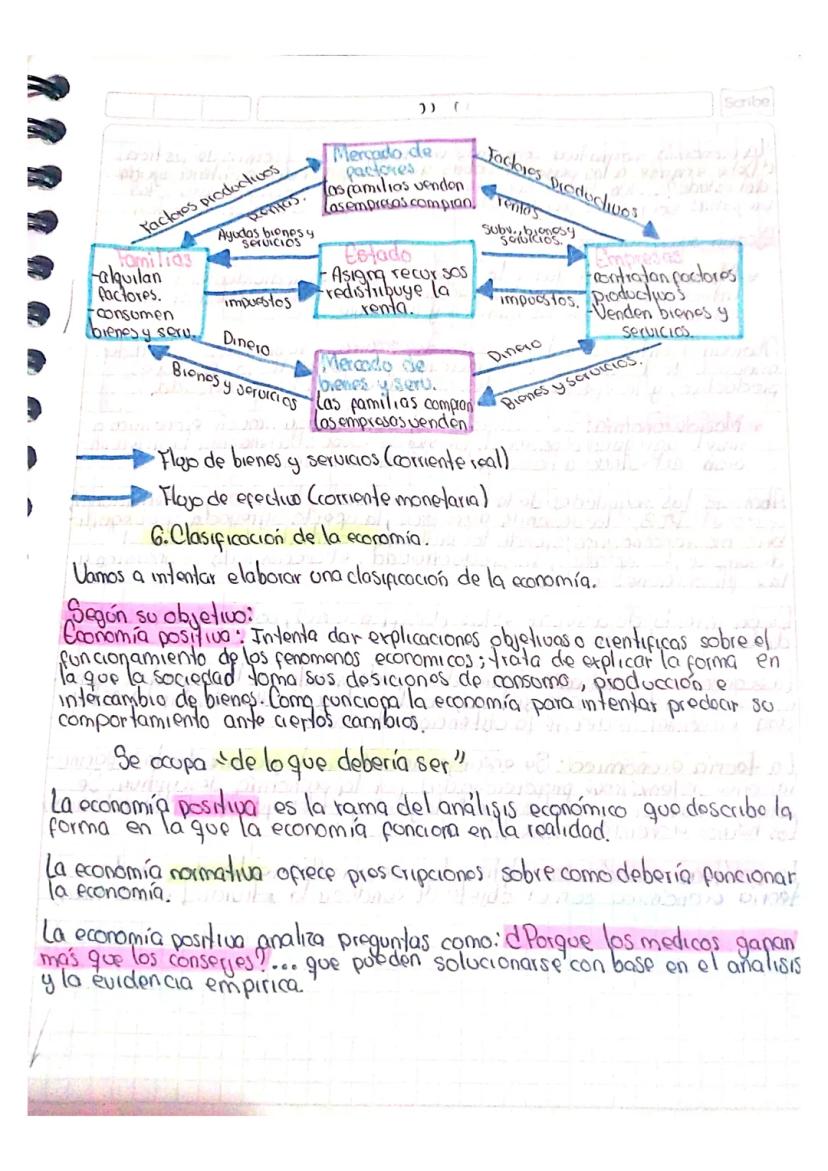 Scribe
Mercado de
factores
Las familias venden
Las empresas compran.
Factores productivos
Rentas.
Factores Productivos
rentas
Ayudas bienes y
servicios
Subv., bienes y
servicios.
Familias
-alquilan
factores.
-consumen
bienes y serv.
Estado
- Asigna recursos
redistribuye la
renta.
Empresas
-contratan factores
productivos
-Venden bienes y
servicios
impuestos
impuestos.
Dinero
Bienes y servicios
Dinero
Bienes y servicios.
Mercado de
bienes y serv.
Las familias compran
Las empresas venden
Flujo de bienes y servicios (corriente real)
Flujo de efectivo (corriente monetaria)
6. Clasificación de la economía.
Vamos a intentar elaborar una clasificación de la economía.
Según su objetivo:
Economía positiva: Intenta dar explicaciones objetivas o cientificas sobre el
funcionamiento de los fenomenos economicos; trata de explicar la forma en
la que la sociedad toma sus desiciones de consumo, producción e
intercambio de bienes. Como funciona la economía para intentar predecir su
comportamiento ante ciertos cambios.
Se ocupa "de lo que debería ser"
La economía positiva es la rama del análisis económico que describe la
forma en la que la economía funciona en la realidad.
La economía normativa ofrece proscripciones sobre como debería funcionar
la economía.
La economía positiva analiza preguntas como: ¿Porque los medicos ganan
más que los conserjes?... que pueden solucionarse con base en el analisis
y la evidencia empirica.